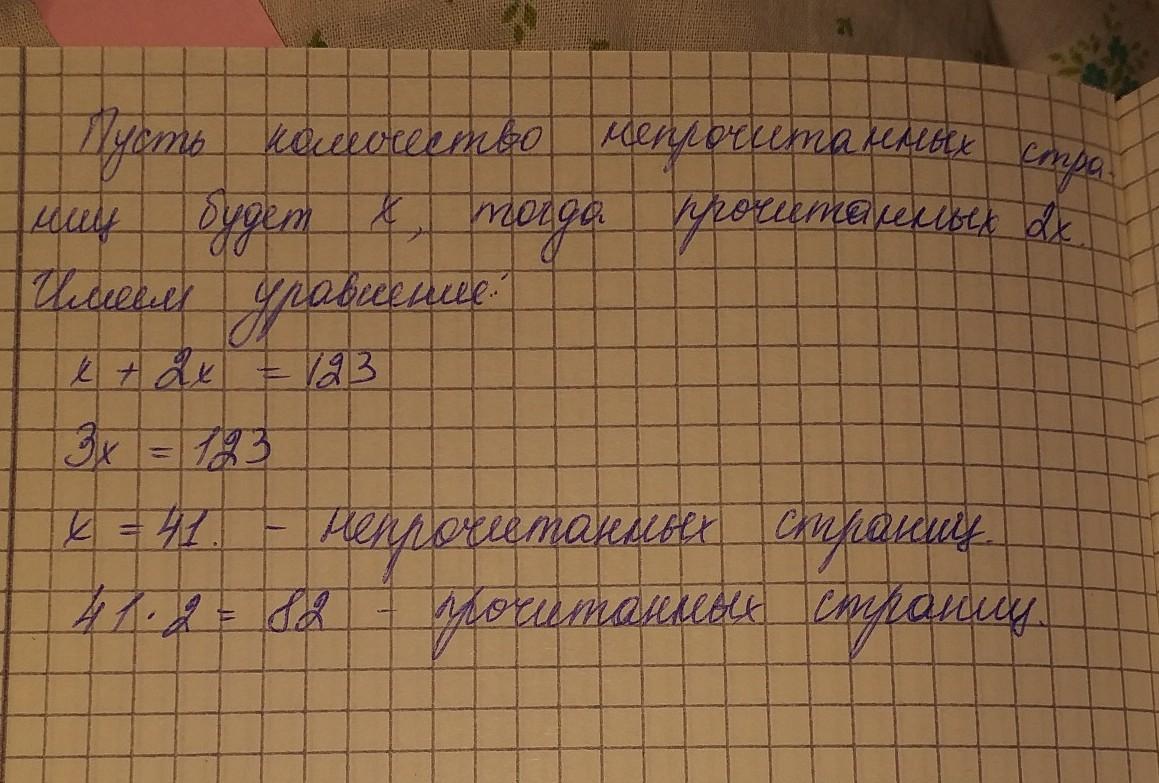 Пусть количество непрочитанных стра-
ниц будет x, тогда прочитанных 2x.
Имеем уравнение:
x + 2x = 123
3x = 123
x = 41. - непрочитанных страниц.
41 · 2 = 82 - прочитанных страниц.